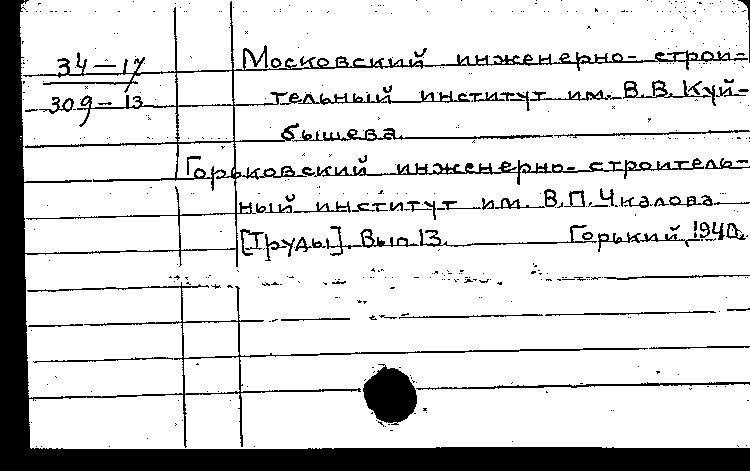 34-17
309-13
Московский инженерно-строи-
тельный институт им. В.В. Куй-
бышева.
Горьковский инженерно-строитель-
ный институт им. В.П. Чкалова.
[Труды]. Вып. 13. Горький, 1940.